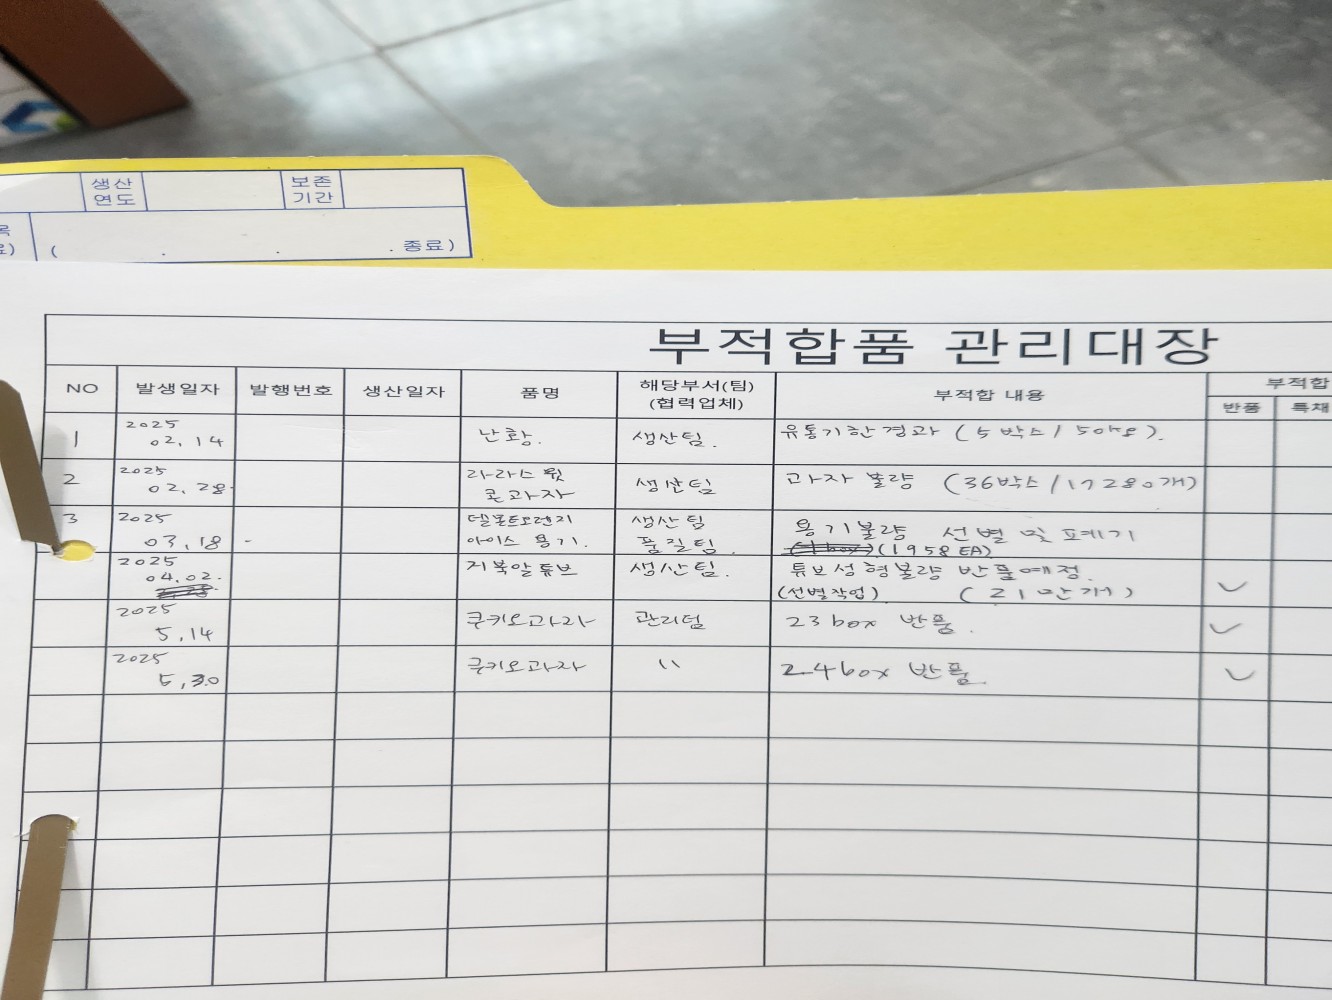 생산 연도 보존 기간
( . . . 종료)
부적합품 관리대장
NO 발생일자 발행번호 생산일자 품명 해당부서(팀) (협력업체) 부적합 내용 부적합
반품 특채
1 2025 02.14 난황. 생산팀. 유통기한경과 (5박스/50kg).
2 2025 02.28. 라라스윗 콘과자 생산팀 과자 불량 (36박스/17280개)
3 2025 03.18 - 아이스 용기. 생산팀 품질팀. 용기불량 선별 및 폐기 (1958EA)
2025 04.02. 거북알튜브 생산팀. 튜브성형불량 반품예정. (선별작업) (21만개)
2025 5.14 쿠키오과자 관리팀 23box 반품.
2025 5.30 쿠키오과자 〃 24box 반품.